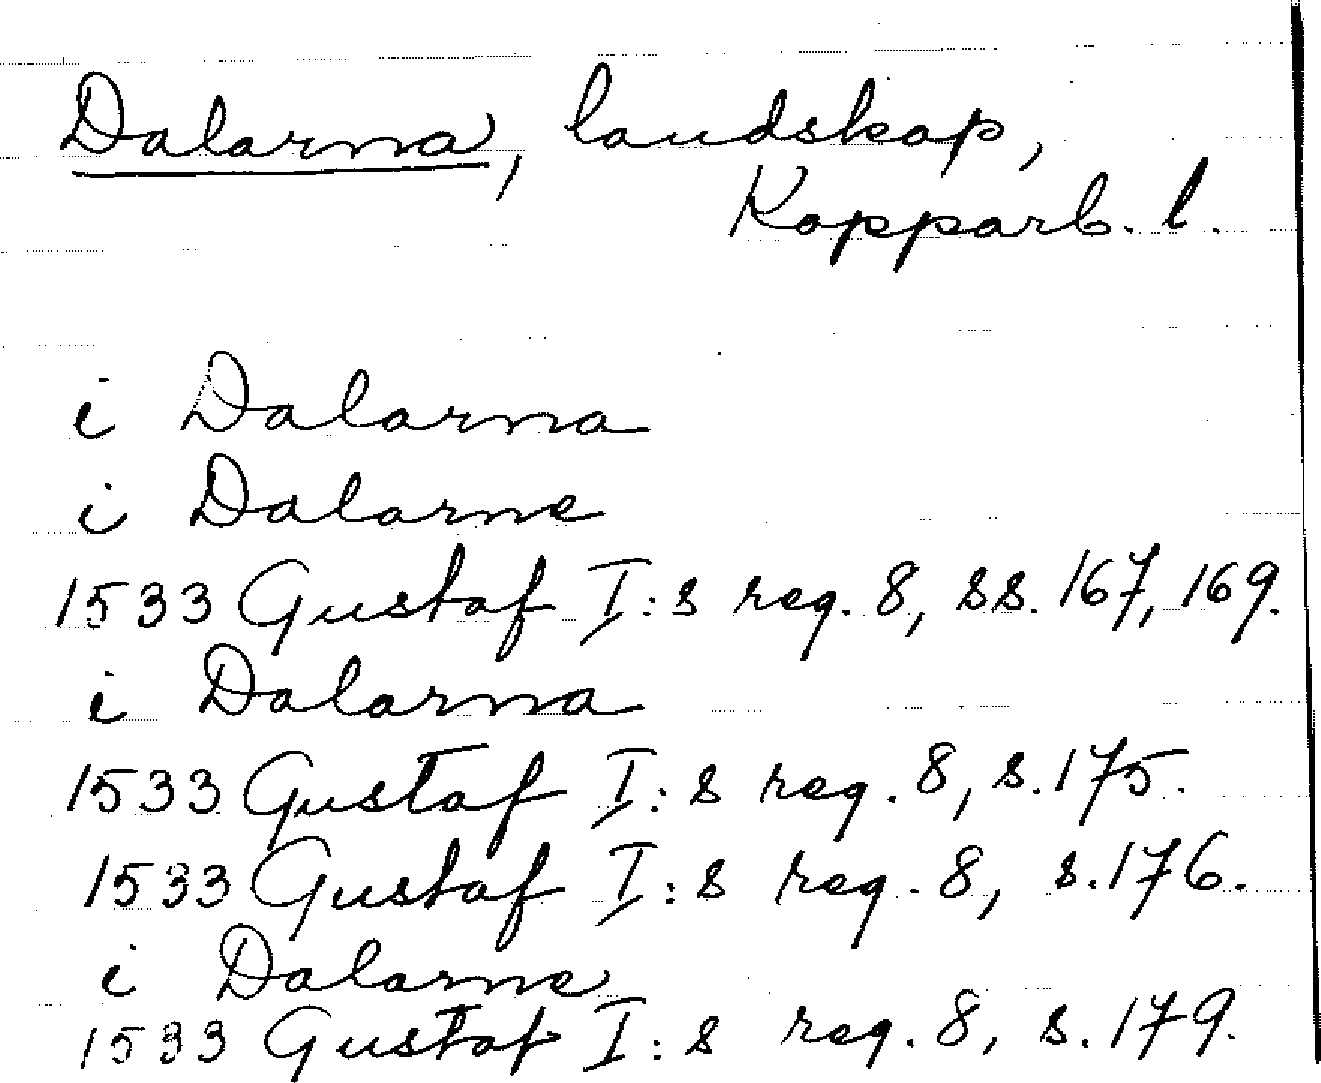 Dalarna, landskap,
Kopparb. l.
i Dalarna
i Dalarne
1533 Gustaf I:s reg. 8, ss. 167, 169.
i Dalarna
1533 Gustaf I:s reg. 8, s. 175.
1533 Gustaf I:s reg. 8, s. 176.
i Dalarne
1533 Gustaf I:s reg. 8, s. 179.